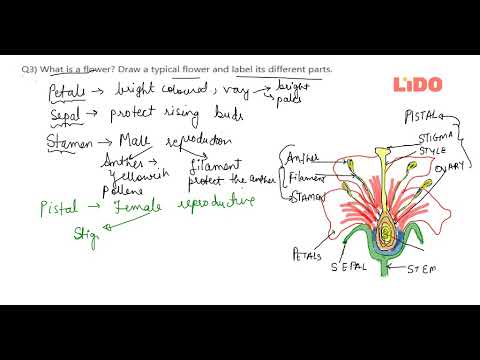 Q3) What is a flower? Draw a typical flower and label its different parts.
LiDO
Petals → bright coloured, vary → bright
→ pales
Sepal → protect rising buds
Stamen → Male reproduction
Anther → Yellowish Pollene
filament protect the anther
Pistal → Female reproductive
Stig
PISTAL
STIGMA
STYLE
OVARY
Anther
Filament
STAMEN
PETALS
SEPAL
STEM